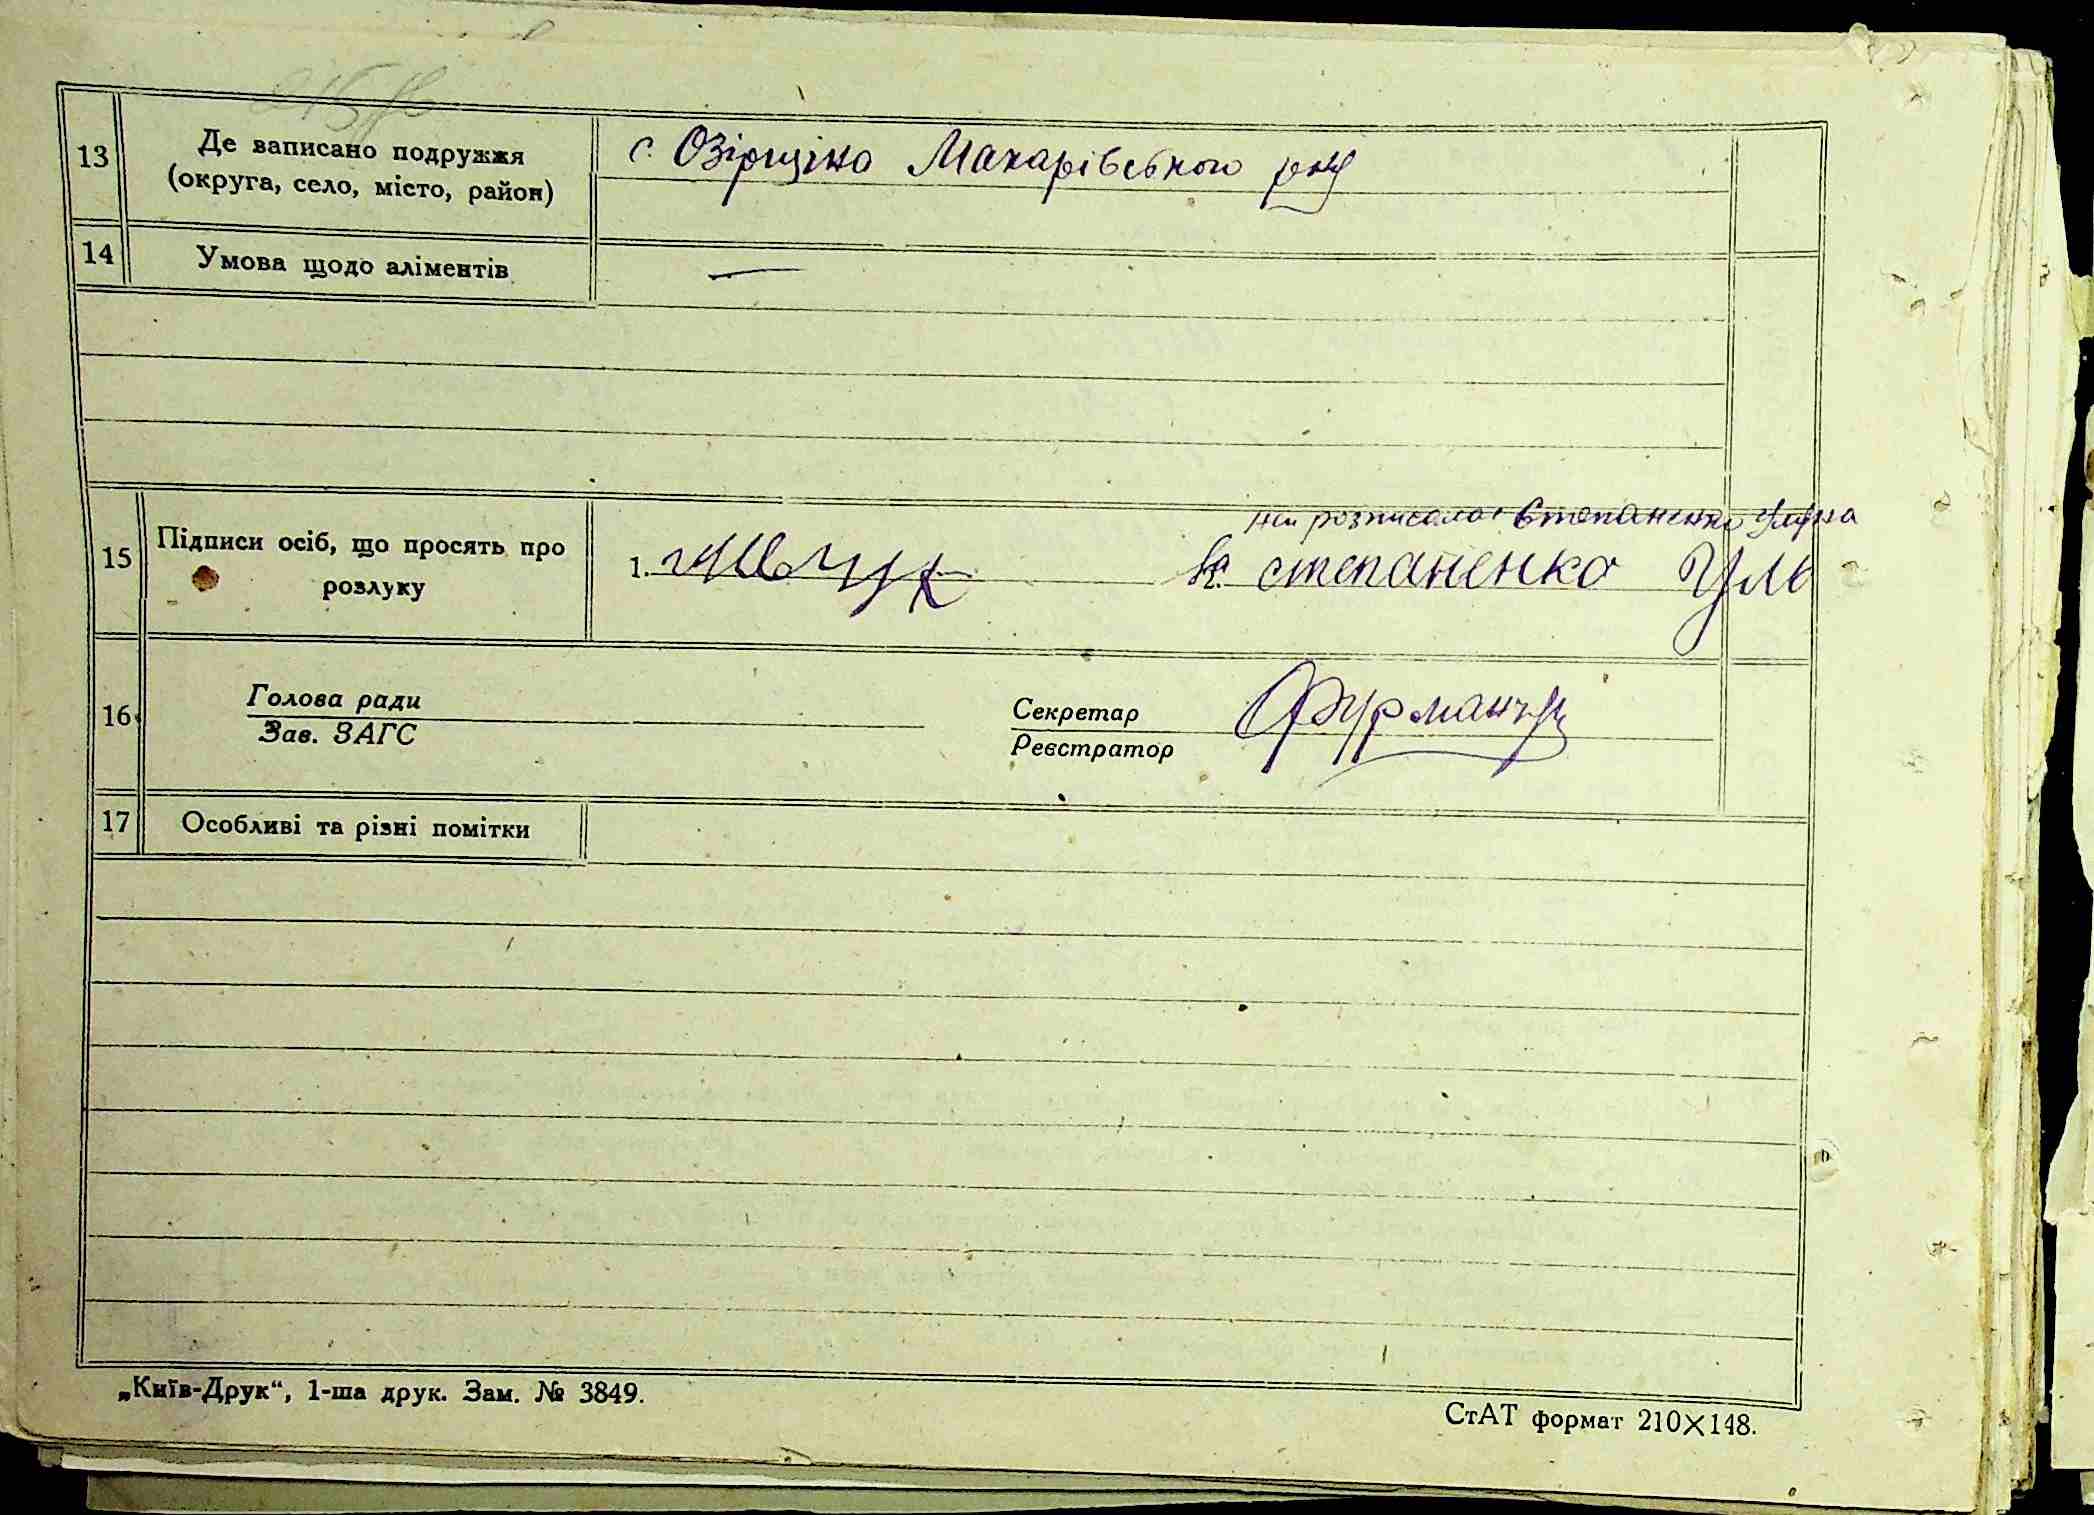 13 Де записано подружжя
(округа, село, місто, район)
с. Озірщіна Макарівського р-ну
14 Умова щодо аліментів —
15 Підписи осіб, що просять про
розлуку
розписалас Степаненко Уляна
1. 2. степаненко Уль
16 Голова ради
Зав. ЗАГС
Секретар
Реєстратор
17 Особливі та різні помітки
„Київ-Друк“, 1-ша друк. Зам. № 3849.
СтАТ формат 210×148.